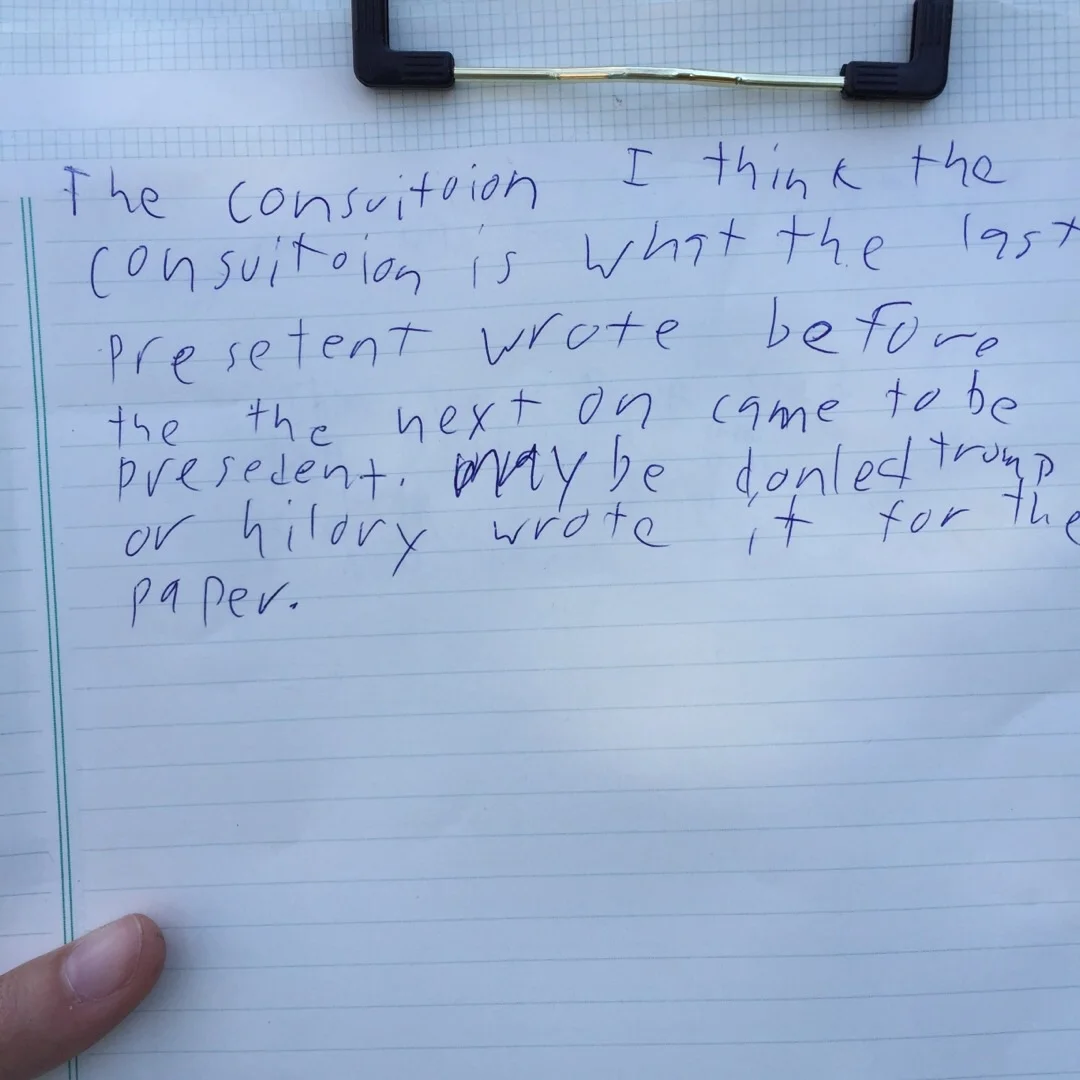 The consuitoion I think the
consuitoion is what the last
presetent wrote before
the the next on came to be
presedent. maybe donled trump
or hilary wrote it for the
paper.